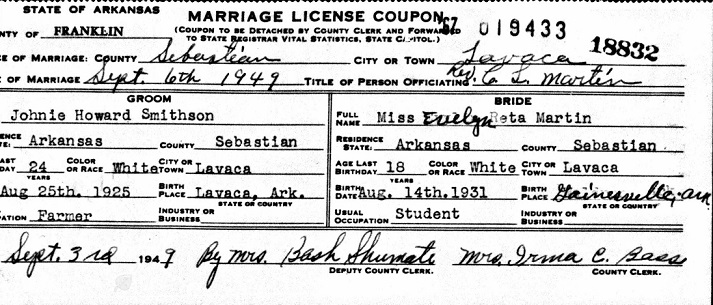 STATE OF ARKANSAS
MARRIAGE LICENSE COUPON
NTY OF FRANKLIN
(COUPON TO BE DETACHED BY COUNTY CLERK AND FORWARDED TO STATE REGISTRAR VITAL STATISTICS, STATE CAPITOL.)
019433
18832
CE OF MARRIAGE: COUNTY Sebastian CITY OR TOWN Lavaca
E OF MARRIAGE Sept. 6th 1949 TITLE OF PERSON OFFICIATING: Rev. C. L. Martin
GROOM BRIDE
Johnie Howard Smithson FULL NAME Miss Evelyn Reta Martin
ENCE TE: Arkansas COUNTY Sebastian RESIDENCE STATE: Arkansas COUNTY Sebastian
AST DAY 24 YEARS COLOR OR RACE White CITY OR TOWN Lavaca AGE LAST BIRTHDAY 18 YEARS COLOR OR RACE White CITY OR TOWN Lavaca
Aug 25th. 1925 BIRTH PLACE Lavaca, Ark. STATE OR COUNTRY BIRTH DATE Aug. 14th.1931 BIRTH PLACE Gainesville, Ark STATE OR COUNTRY
ATION Farmer INDUSTRY OR BUSINESS USUAL OCCUPATION Student INDUSTRY OR BUSINESS
Sept. 3rd 1949 By Mrs. Bash Shumate Mrs. Irma C. Bass
DEPUTY COUNTY CLERK. COUNTY CLERK.